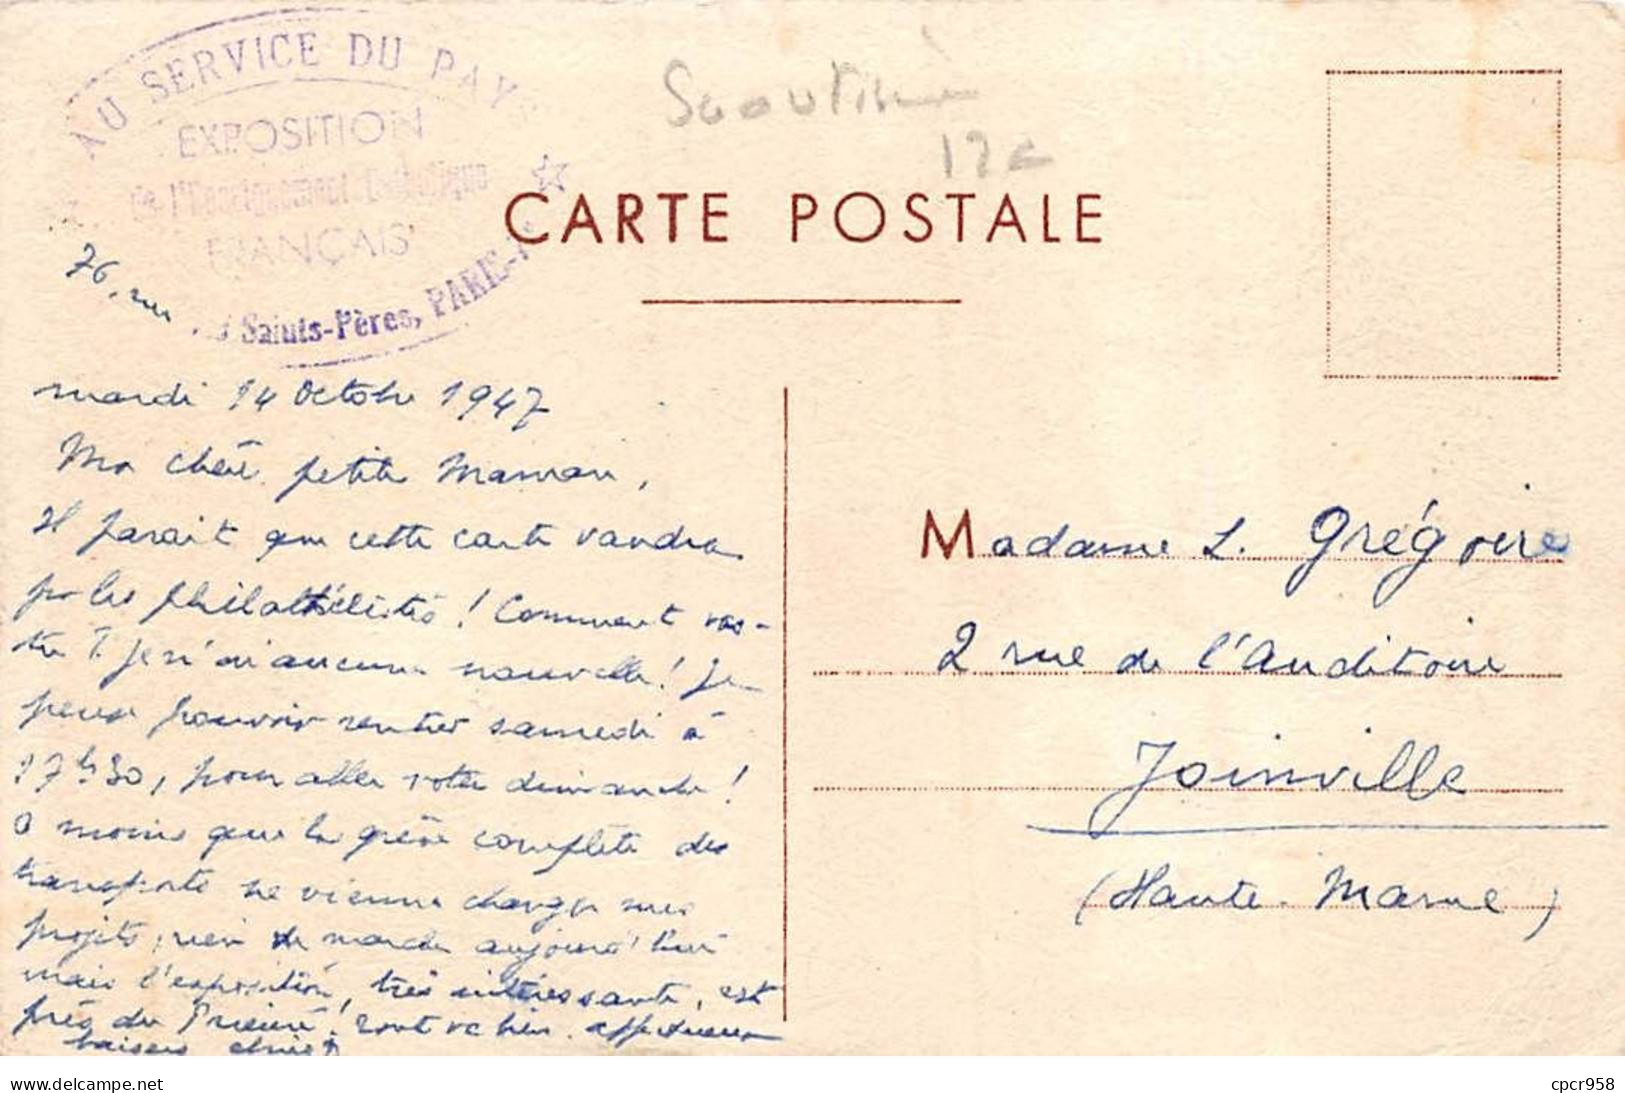 AU SERVICE DU PAYS
EXPOSITION
de l'Enseignement Catholique
FRANÇAIS
76, rue des Saints-Pères, PARIS-7e
12€
CARTE POSTALE
mardi 14 Octobre 1947
Ma chère petite Maman,
Il parait que cette carte vaudra
ps les philatélistes ! Comment vas-
tu ? Je n'ai aucune nouvelle ! Je
peux pouvoir rentrer samedi à
17h30, pour aller voter dimanche !
à moins que la grève complète des
transports ne vienne changer mes
projets, rien ne marche aujourd'hui
mais l'exposition, très intéressante, est
près du Prieuré ! tout va bien. affectueux
baisers
Madame L. Grégoire
2 rue de l'Auditoire
Joinville
(Haute-Marne)
www.delcampe.net
cpcr958